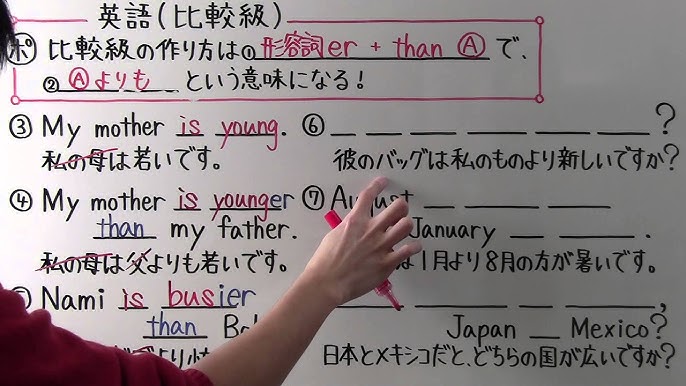 英語(比較級)
ポ 比較級の作り方は①形容詞er + than Ⓐで、
②Ⓐよりも という意味になる!
③ My mother is young.
私の母は若いです。
④ My mother is younger
than my father.
私の母は父よりも若いです。
Nami is busier
than
⑥ ?
彼のバッグは私のものより新しいですか?
⑦ August
January .
は1月より8月の方が暑いです。
,
Japan Mexico?
日本とメキシコだと、どちらの国が広いですか?